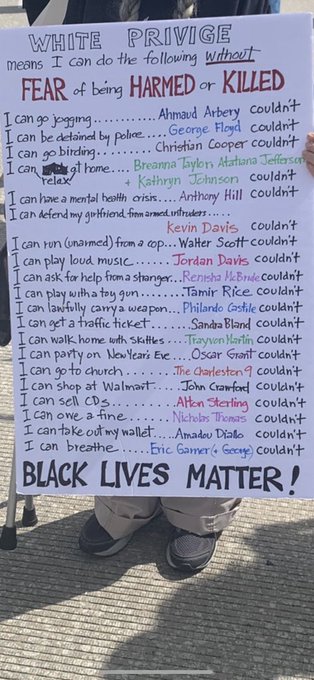 WHITE PRIVIGE
means I can do the following without
FEAR of being HARMED or KILLED
I can go jogging........... Ahmaud Arbery couldn't
I can be detained by police.... George Floyd couldn't
I can go birding......... Christian Cooper couldn't
I can relax at home.... Breanna Taylor, Atatiana Jefferson
+ Kathryn Johnson couldn't
I can have a mental health crisis.... Anthony Hill couldn't
I can defend my girlfriend from armed intruders.....
Kevin Davis couldn't
I can run (unarmed) from a cop... Walter Scott couldn't
I can play loud music...... Jordan Davis couldn't
I can ask for help from a stranger... Renisha McBride couldn't
I can play with a toy gun....... Tamir Rice couldn't
I can lawfully carry a weapon... Philando Castile couldn't
I can get a traffic ticket....... Sandra Bland couldn't
I can walk home with Skittles.... Trayvon Martin couldn't
I can party on New Year's Eve.... Oscar Grant couldn't
I can go to church....... The Charleston 9 couldn't
I can shop at Walmart..... John Crawford couldn't
I can sell CDs......... Alton Sterling couldn't
I can owe a fine....... Nicholas Thomas couldn't
I can take out my wallet.... Amadou Diallo couldn't
I can breathe...... Eric Garner (+ George) couldn't
BLACK LIVES MATTER!